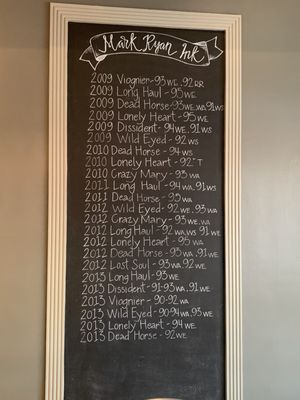 Mark Ryan Ink
2009 Viognier-93WE, 92RR
2009 Long Haul - 95WE
2009 Dead Horse-93WE,WA,91WS
2009 Lonely Heart - 95WE
2009 Dissident - 94WE, 91WS
2009 Wild Eyed - 92WS
2010 Dead Horse - 94WS
2010 Lonely Heart - 92+T
2010 Crazy Mary - 93WA
2011 Long Haul - 94WA, 91WS
2011 Dead Horse - 93WA
2012 Wild Eyed - 92WE, 93WA
2012 Crazy Mary - 93WE,WA
2012 Long Haul - 92WA,WS 91WE
2012 Lonely Heart - 95WA
2012 Dead Horse - 93WA, 91WE
2012 Lost Soul - 93WA, 92WE
2013 Long Haul - 93WE
2013 Dissident - 91-93WA, 91WE
2013 Viognier - 90-92WA
2013 Wild Eyed - 90-94WA, 93WE
2013 Lonely Heart - 94WE
2013 Dead Horse - 92WE